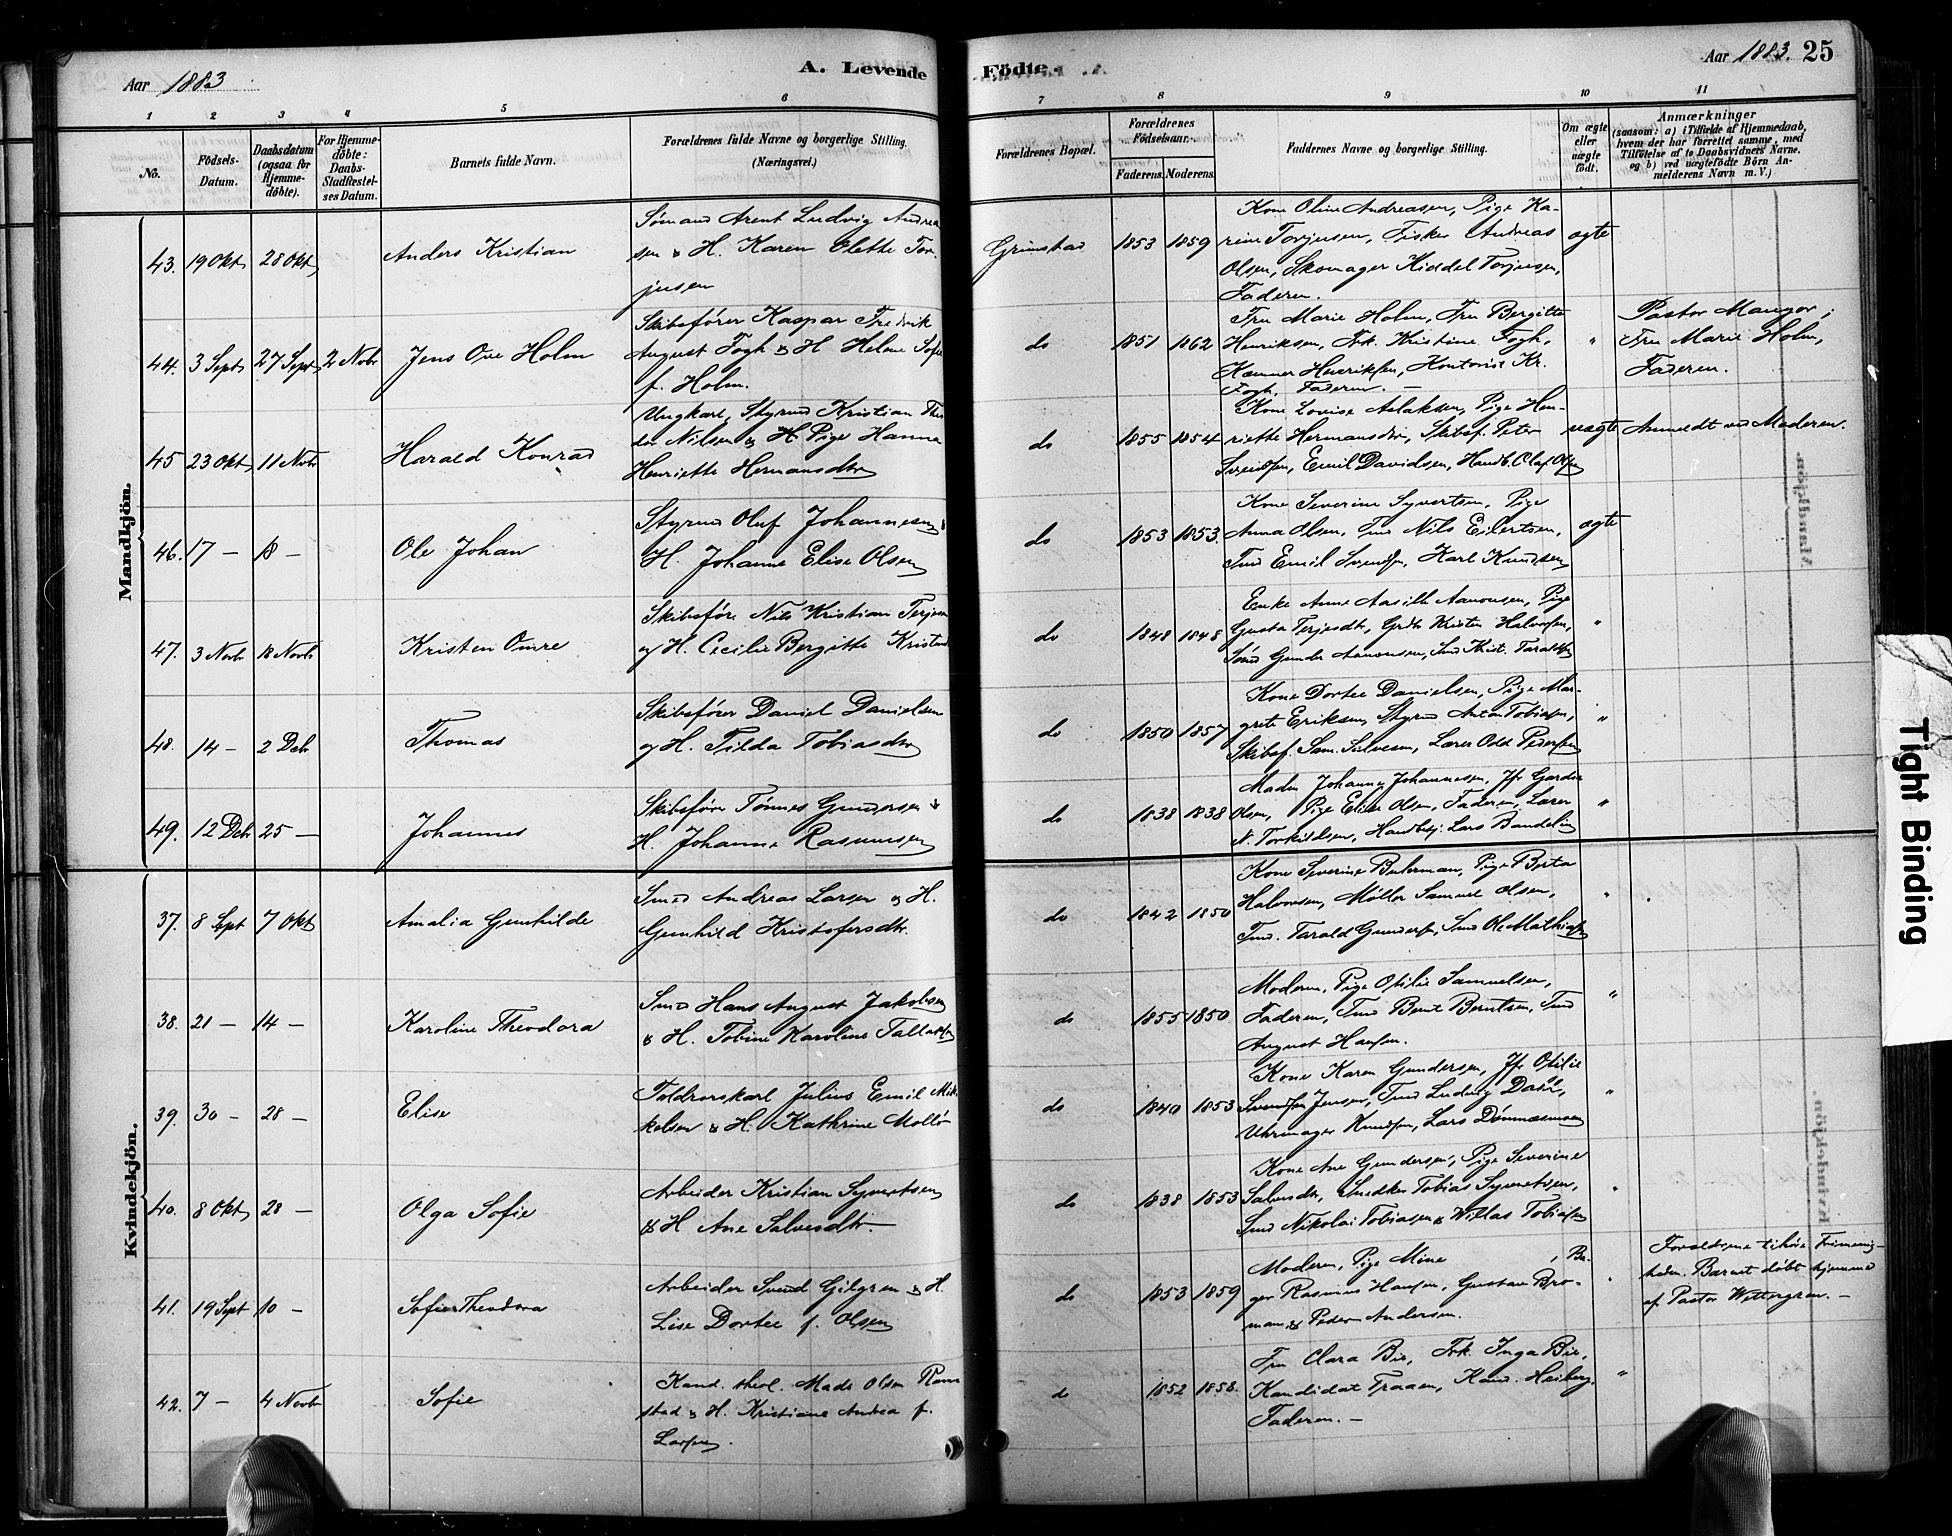 Aar 1883
A. Levende
Födte.
Aar 1883. 25
1 2 3 4 5 6 7 8 9 10 11
No.
Födsels-Datum.
Daabsdatum (ogsaa for Hjemme-döbte).
For Hjemme-döbte: Daabs-Stadfæstel-ses Datum.
Barnets fulde Navn.
Forældrenes fulde Navne og borgerlige Stilling. (Næringsvei.)
Forældrenes Bopæl.
Forældrenes Födselsaar.
Faderens. Moderens.
Faddernes Navne og borgerlige Stilling.
Om ægte eller uægte födt.
Anmærkninger
(saasom: a) i Tilfælde af Hjemmedaab,
hvem der har forrettet samme, med
Tilföielse af to Daabsvidners Navne.
og b) ved uægtefödte Börn An-
melderens Navn m. V.)
Mandkjön.
43. 19 Okt 28 Okt Anders Kristian
Sømand Arent Ludvig Andrea
sen & H. Karen Olette Tor-
jusen
Grimstad 1853 1859
Kone Oline Andreasen, Pige Ka-
rine Torjusen, Fisker Andreas
Olsen, Skomager Kiddel Torjusen,
Faderen.
ægte
44. 3 Sept 27 Sept 2 Novbr Jens Ove Holm
Skibsfører Kaspar Fredrik
August Fogh & H. Helene Sofie
f. Holm.
do 1851 1862
Fru Marie Holm, Fru Bergitte
Henriksen, Frk. Kristine Fogh,
Kæmner Henriksen, Kontorist Kr.
Fogh, Faderen. —
"
Pastor Mangor,
Fru Marie Holm,
Faderen.
45 23 Okt 11 Novbr Harald Konrad
Ungkarl, Styrmd Kristian Theo
dor Nilsen & Pige Hanna
Henriette Hermansdtr
do 1855 1854
Kone Lovise Aslaksen, Pige Hen-
riette Hermansdtr, Skibsf. Peter
Svendsen, Emil Davidsen, Handb. Olaf Olsen
uægte Anmeldt ved Moderen.
46. 17 — 18 — Ole Johan
Styrmd Oluf Johannesen &
H. Johanne Elise Olsen
do 1853 1853.
Kone Severine Syvertsen, Pige
Anna Olsen, Tmd Nils Eilertsen,
Tmd Emil Svendsen, Karl Knudsen
ægte
47. 3 Novb 18 Novb Kristen Omre
Skibsfør. Nils Kristian Terjesen
og H. Cecilie Bergitte
do 1848 1848
Enke Anne Aasille Aanonsen, Pige
Gusta Terjesdtr, Kristen Halvorsen,
Sømd Gunder Aanonsen,
"
48. 14 — 2 Deb Thomas
Skibsfører Daniel Danielsen
og H. Tilda Tobiasdtr
do 1850 1857
Kone Dortea Danielsen, Pige Mar-
grete Eriksen, Styrmd Anton Tobiasen,
Skibsf. Sam. Salvesen, Lærer Odd Pedersen
"
49. 12 Deb 25 — Johannes
Skibsfører Tønnes Gundersen &
H. Johanne Rasmusen
do 1838 1838
Madm Johanne Johannesen, Jfr
Olsen, Pige Elise Olsen, Faderen, Lærer
N. Torkildsen, Handbtj. Lars Bandelin
"
Kvindekjön.
37. 8 Sept 7 Okt Amalia Gunhilde
Smed Andreas Larsen & H.
Gunhild Kristofersdtr.
do 1842 1850
Kone Severine Buhrman, Pige Berta
Halvorsen, Møller Samuel Olsen,
Tmd. Tarald Gunders., Smd Ole Mathiasen
"
38. 21 — 14 — Karoline Theodora
Smed Hans August Jakobsen
& H. Tobine Karoline Tallaksen
do 1855 1850
Moderen, Pige Otilie Samuelsen,
Faderen, Tmd Bernt Berntsen, Tmd
August Hansen.
"
39. 30 — 28 — Elise
Toldrorskarl Julius Emil Mik
kelsen & H. Kathrine
do 1840 1853
Kone Karen Gundersen, Jfr Otilie
Jensen, Tmd Ludvig
Uhrmager Knudsen, Lars
"
40. 8 Okt 28 — Olga Sofie
Arbeider Kristian Syvertsen
& H Ane Salvesdtr —
do 1838 1853
Kone Ane Gundersen, Pige Severine
Salvesdtr, Snedker Tobias Syvertsen,
Smd Nikolai Tobiasen & Willas Tobiasen
"
41. 19 Sept 10 — Sofie Theodora
Arbeider Svend Gilgren & H.
Lise Dortee f. Olsen
do 1853 1859
Moderen, Pige Mine , Ba-
ger Rasmus Hansen, Gustav Bro-
man & Peder Andersen.
"
Forældrene tilhøre Frimenig-
heden. Barnet døbt hjemme
af Pastor Wettergren. —
42. 7 — 4 Novbr Sofie
Kand. theol. Mads Olsen Ram
stad & H. Kristiane Andrea f.
Larsen.
do 1852 1858.
Fru Clara Bie, Frk. Inga Bie,
Kandidat Traaen, Kand. Heiberg,
Faderen. —
"
Tight Binding